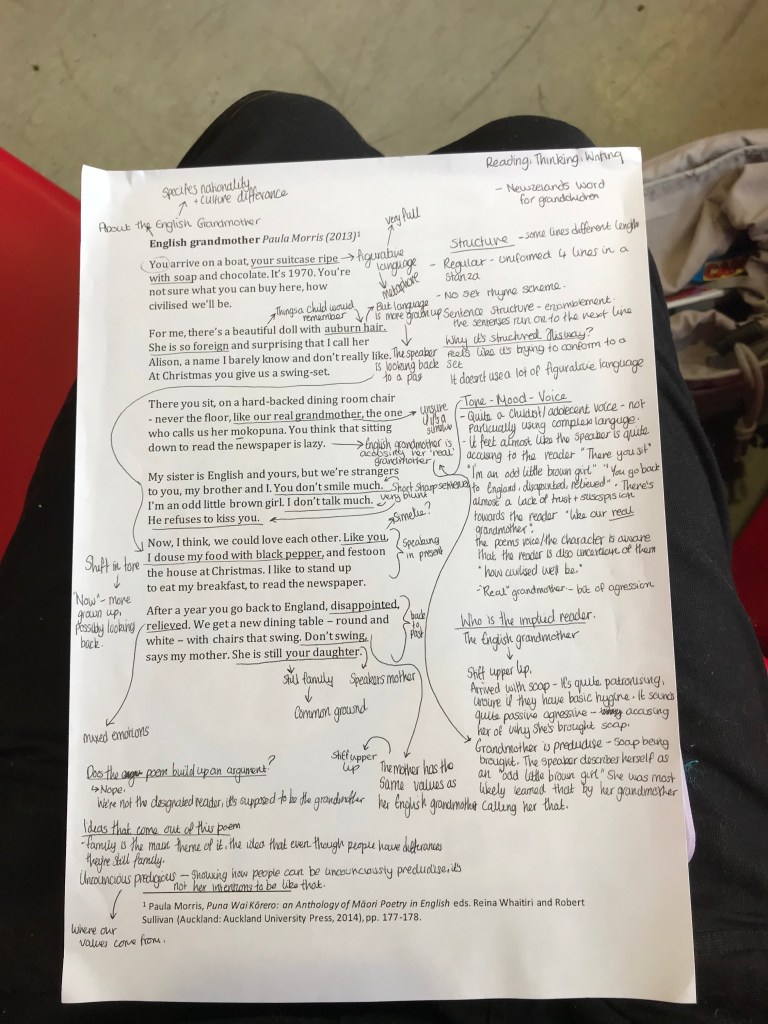 Reading, Thinking, Writing
Specifies nationality
+ culture difference
- Newzelands word
for grandchildren
About the English Grandmother
very full
English grandmother Paula Morris (2013)1
You arrive on a boat, your suitcase ripe
with soap and chocolate. It's 1970. You're
not sure what you can buy here, how
civilised we'll be.
figurative
language
metaphor
Things a child would
remember
But language
is more grown up
For me, there's a beautiful doll with auburn hair.
She is so foreign and surprising that I call her
Alison, a name I barely know and don't really like.
At Christmas you give us a swing-set.
The speaker
is looking back
to a past
There you sit, on a hard-backed dining room chair
- never the floor, like our real grandmother, the one
who calls us her mokopuna. You think that sitting
down to read the newspaper is lazy.
unsure
if it's a
simile
English grandmother is
accusing her 'real'
grandmother
My sister is English and yours, but we're strangers
to you, my brother and I. You don't smile much.
I'm an odd little brown girl. I don't talk much.
He refuses to kiss you.
Short sharp sentences
very blunt
Simelie?
Now, I think, we could love each other. Like you,
I douse my food with black pepper, and festoon
the house at Christmas. I like to stand up
to eat my breakfast, to read the newspaper.
Speaking
in present
Shift in tone
"Now" - more
grown up,
possibly looking
back.
After a year you go back to England, disappointed,
relieved. We get a new dining table – round and
white – with chairs that swing. Don't swing,
says my mother. She is still your daughter.
back
to
past
Still family
Common ground
Speakers mother
mixed emotions
Stiff upper
lip
The mother has the
same values as
her English grandmother
Structure - some lines different length
- Regular - uniformed 4 lines in a
stanza
- No set rhyme scheme.
Sentence structure - enjambement.
the sentences run on to the next line
Why it's structured this way?
Feels like it's trying to conform to a
set
It doesn't use a lot of figurative language
Tone - Mood - Voice
- Quite a childish/adolecent voice - not
particually using complex language.
- It feels almost like the speaker is quite
accusing to the reader "There you sit"
"I'm an odd little brown girl" "You go back
to England, disapointed, relieved". There's
almost a lack of trust + suscispision
towards the reader "like our real
grandmother".
The poems voice/the character is aware
that the reader is also uncertian of them
"how civilised we'll be."
- "Real" grandmother - bit of agression
Who is the implied reader.
The English grandmother
Stiff upper lip.
Arrived with soap - it's quite patronising,
unsure if they have basic hygine. It sounds
quite passive agressive - accusing
her of why she's brought soap.
Grandmother is predudise - soap being
brought. The speaker describes herself as
an "odd little brown girl." She was most
likely learned that by her grandmother
calling her that.
Does the poem build up an argument?
Nope.
We're not the designated reader, it's supposed to be the grandmother
Ideas that come out of this poem
- family is the main theme of it, the idea that even though people have differances
they're still family.
Unconcious predigious - Showing how people can be unconciously predudise, it's
not her intentions to be like that.
Where our
values come from.
1 Paula Morris, Puna Wai Kōrero: an Anthology of Māori Poetry in English eds. Reina Whaitiri and Robert
Sullivan (Auckland: Auckland University Press, 2014), pp. 177-178.